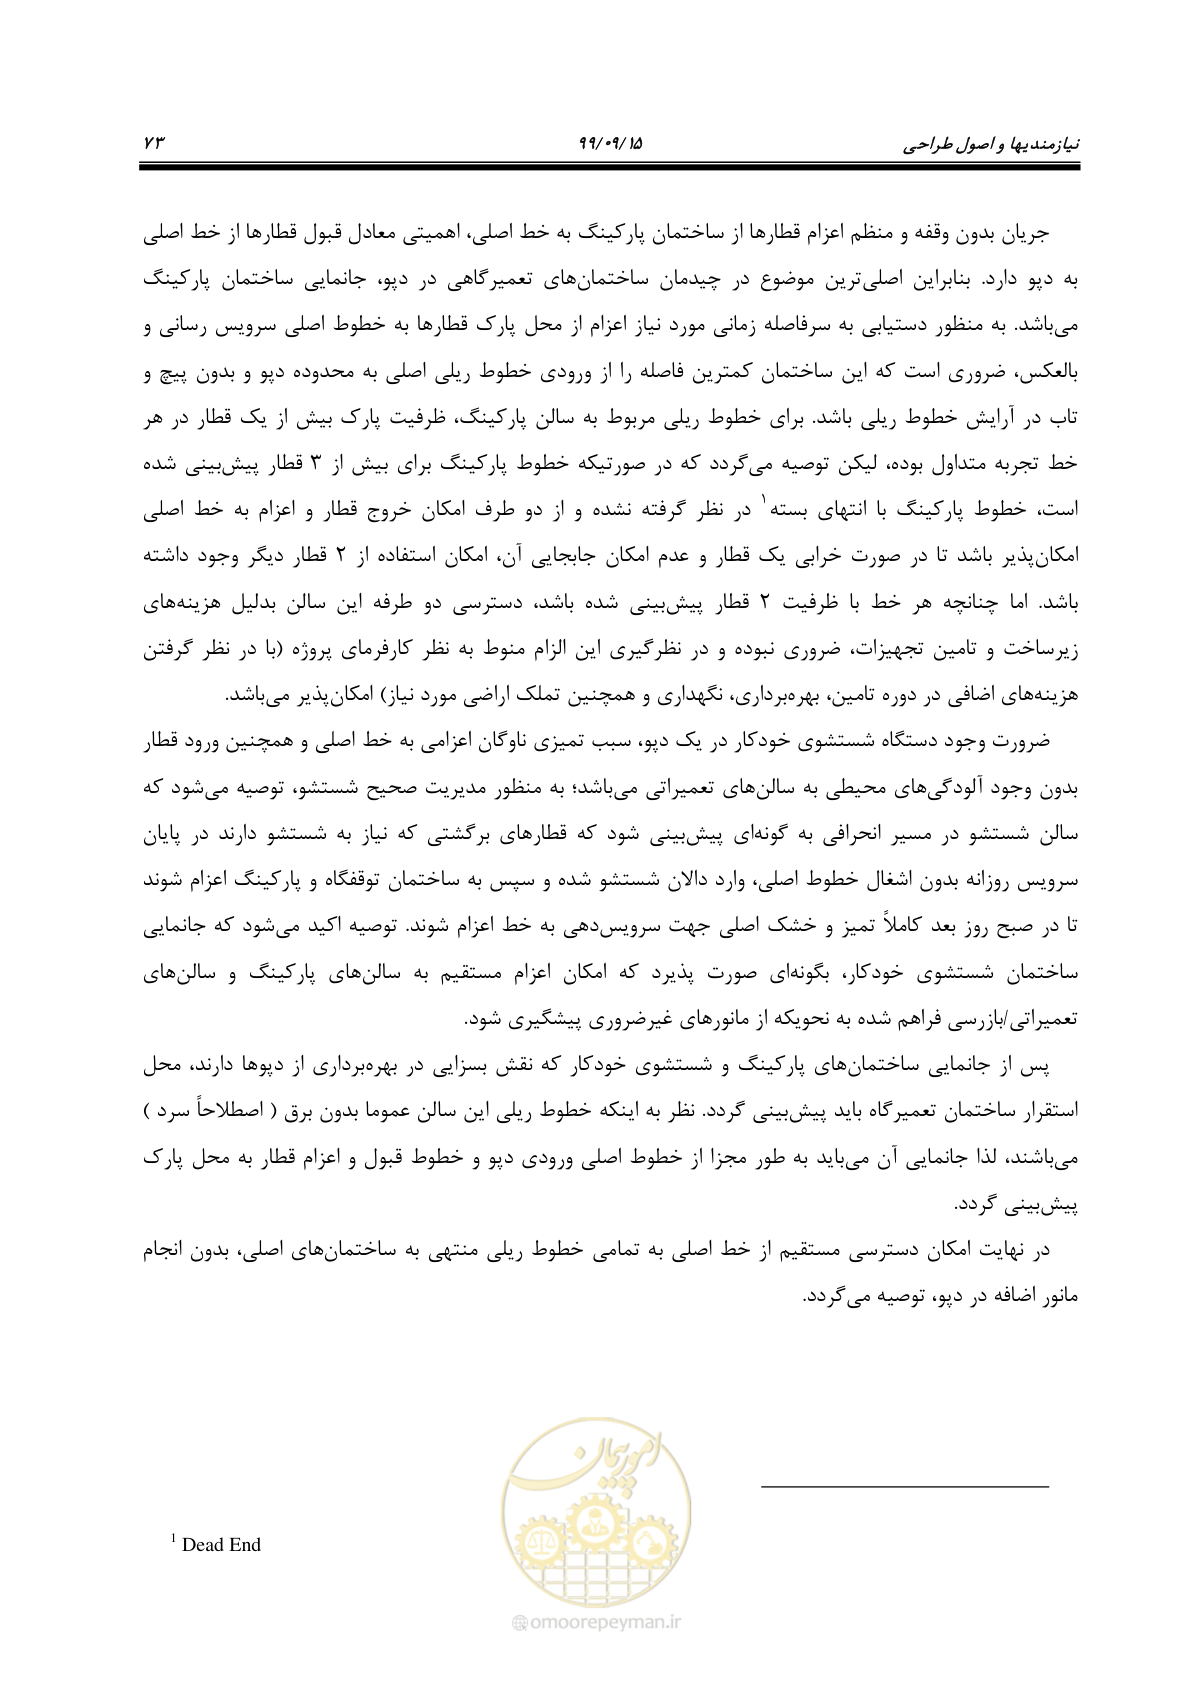 نیازمندیها و اصول طراحی ۹۹/۰۹/۱۵ ۷۳
جریان بدون وقفه و منظم اعزام قطارها از ساختمان پارکینگ به خط اصلی، اهمیتی معادل قبول قطارها از خط اصلی
به دپو دارد. بنابراین اصلی‌ترین موضوع در چیدمان ساختمان‌های تعمیرگاهی در دپو، جانمایی ساختمان پارکینگ
می‌باشد. به منظور دستیابی به سرفاصله زمانی مورد نیاز اعزام از محل پارک قطارها به خطوط اصلی سرویس رسانی و
بالعکس، ضروری است که این ساختمان کمترین فاصله را از ورودی خطوط ریلی اصلی به محدوده دپو و بدون پیچ و
تاب در آرایش خطوط ریلی باشد. برای خطوط ریلی مربوط به سالن پارکینگ، ظرفیت پارک بیش از یک قطار در هر
خط تجربه متداول بوده، لیکن توصیه می‌گردد که در صورتیکه خطوط پارکینگ برای بیش از ۳ قطار پیش‌بینی شده
است، خطوط پارکینگ با انتهای بسته۱ در نظر گرفته نشده و از دو طرف امکان خروج قطار و اعزام به خط اصلی
امکان‌پذیر باشد تا در صورت خرابی یک قطار و عدم امکان جابجایی آن، امکان استفاده از ۲ قطار دیگر وجود داشته
باشد. اما چنانچه هر خط با ظرفیت ۲ قطار پیش‌بینی شده باشد، دسترسی دو طرفه این سالن بدلیل هزینه‌های
زیرساخت و تامین تجهیزات، ضروری نبوده و در نظرگیری این الزام منوط به نظر کارفرمای پروژه (با در نظر گرفتن
هزینه‌های اضافی در دوره تامین، بهره‌برداری، نگهداری و همچنین تملک اراضی مورد نیاز) امکان‌پذیر می‌باشد.
ضرورت وجود دستگاه شستشوی خودکار در یک دپو، سبب تمیزی ناوگان اعزامی به خط اصلی و همچنین ورود قطار
بدون وجود آلودگی‌های محیطی به سالن‌های تعمیراتی می‌باشد؛ به منظور مدیریت صحیح شستشو، توصیه می‌شود که
سالن شستشو در مسیر انحرافی به گونه‌ای پیش‌بینی شود که قطارهای برگشتی که نیاز به شستشو دارند در پایان
سرویس روزانه بدون اشغال خطوط اصلی، وارد دالان شستشو شده و سپس به ساختمان توقفگاه و پارکینگ اعزام شوند
تا در صبح روز بعد کاملاً تمیز و خشک اصلی جهت سرویس‌دهی به خط اعزام شوند. توصیه اکید می‌شود که جانمایی
ساختمان شستشوی خودکار، بگونه‌ای صورت پذیرد که امکان اعزام مستقیم به سالن‌های پارکینگ و سالن‌های
تعمیراتی/بازرسی فراهم شده به نحویکه از مانورهای غیرضروری پیشگیری شود.
پس از جانمایی ساختمان‌های پارکینگ و شستشوی خودکار که نقش بسزایی در بهره‌برداری از دپوها دارند، محل
استقرار ساختمان تعمیرگاه باید پیش‌بینی گردد. نظر به اینکه خطوط ریلی این سالن عموما بدون برق ( اصطلاحاً سرد )
می‌باشند، لذا جانمایی آن می‌باید به طور مجزا از خطوط اصلی ورودی دپو و خطوط قبول و اعزام قطار به محل پارک
پیش‌بینی گردد.
در نهایت امکان دسترسی مستقیم از خط اصلی به تمامی خطوط ریلی منتهی به ساختمان‌های اصلی، بدون انجام
مانور اضافه در دپو، توصیه می‌گردد.
1 Dead End
امور پیمان
omoorepeyman.ir